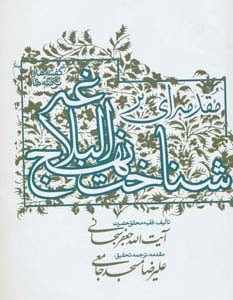 مقدمه‌ای بر
شناخت نهج البلاغه
تألیف: فقیه محقق حضرت
آیت الله جعفر سبحانی
مقدمه، ترجمه، تحقیق:
علیرضا مسجد جامعی